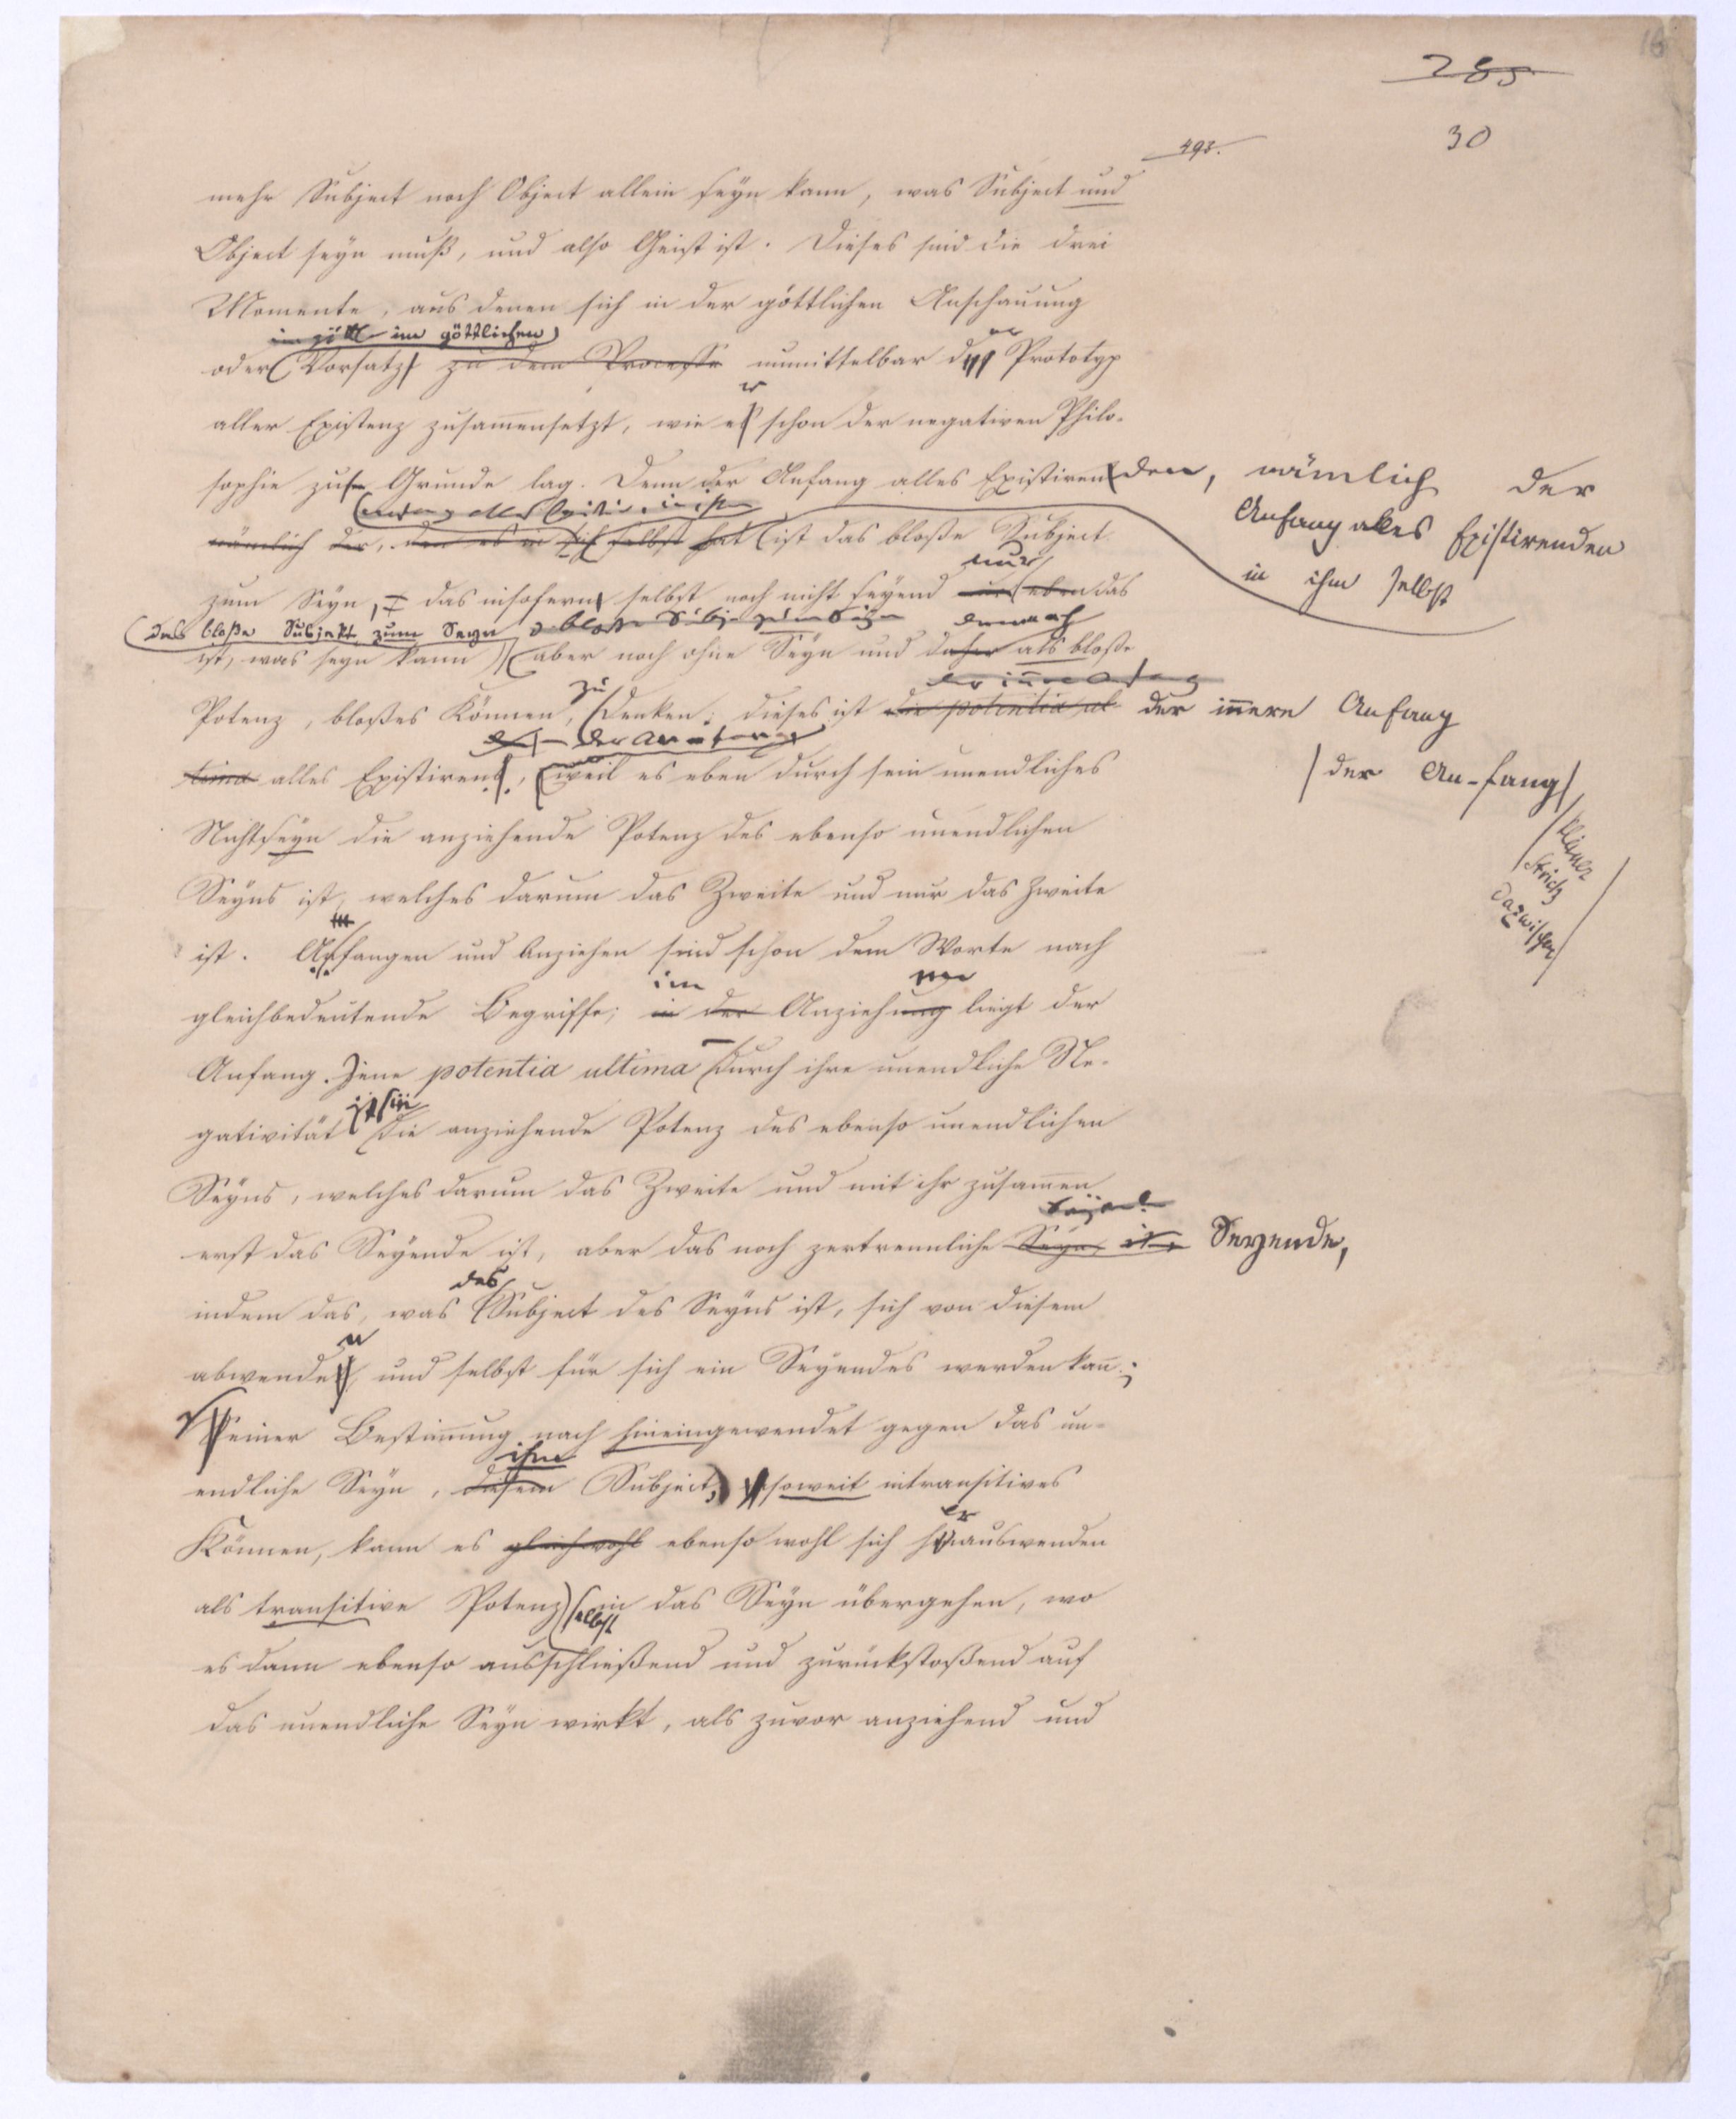 16
285
30
493.
mehr Subject noch Object allein seyn kann, was Subject und
Object seyn muß, und also Geist ist. Dieses sind die drei
Momente, aus denen sich in der göttlichen Anschauung
im göttlichen
oder Vorsatz zu dem Processe unmittelbar der Prototyp
aller Existenz zusam̅ensetzt, wie er schon der negativen Philo-
sophie zu Grunde lag. Denn der Anfang alles Existirenden, nämlich der
Anfang alles Existirenden
in ihm selbst
nämlich der, den es in sich selbst hat ist das bloße Subject
nur
zum Seyn, das insofern selbst noch nicht seyend eben das
das bloße Subjekt zum Seyn demnach
ist, was seyn kann aber noch ohne Seyn und daher als bloße
der in̅ere Anfang
zu
Potenz, bloßes Können, denken; dieses ist die potentia ul der in̅ere Anfang
der An-fang
tima alles Existirens, weil es eben durch sein unendliches
der An-fang
kleiner
Strich
dazwischen
Nichtseyn die anziehende Potenz des ebenso unendlichen
Seyns ist, welches darum das Zweite und nur das Zweite
ist. Anfangen und Anziehen sind schon dem Worte nach
im
gleichbedeutende Begriffe; in der Anziehung liegt der
Anfang. Jene potentia ultima durch ihre unendliche Ne-
gativität die anziehende Potenz des ebenso unendlichen
Seyns, welches darum das Zweite und mit ihr zusam̅en
erst das Seyende ist, aber das noch zertrennliche Seyn, Seyende,
des
indem das, was Subject des Seyns ist, sich von diesem
abwenden und selbst für sich ein Seyendes werden kan̅;
seiner Bestim̅ung nach hineingewendet gegen das un-
ihm
endliche Seyn, diesem Subject, soweit intransitives
er
Können, kann es gleichwohl ebenso wohl sich herauswenden
als transitive Potenz in das Seyn übergehen, wo
selbst
es dann ebenso ausschließend und zurückstoßend auf
das unendliche Seyn wirkt, als zuvor anziehend und